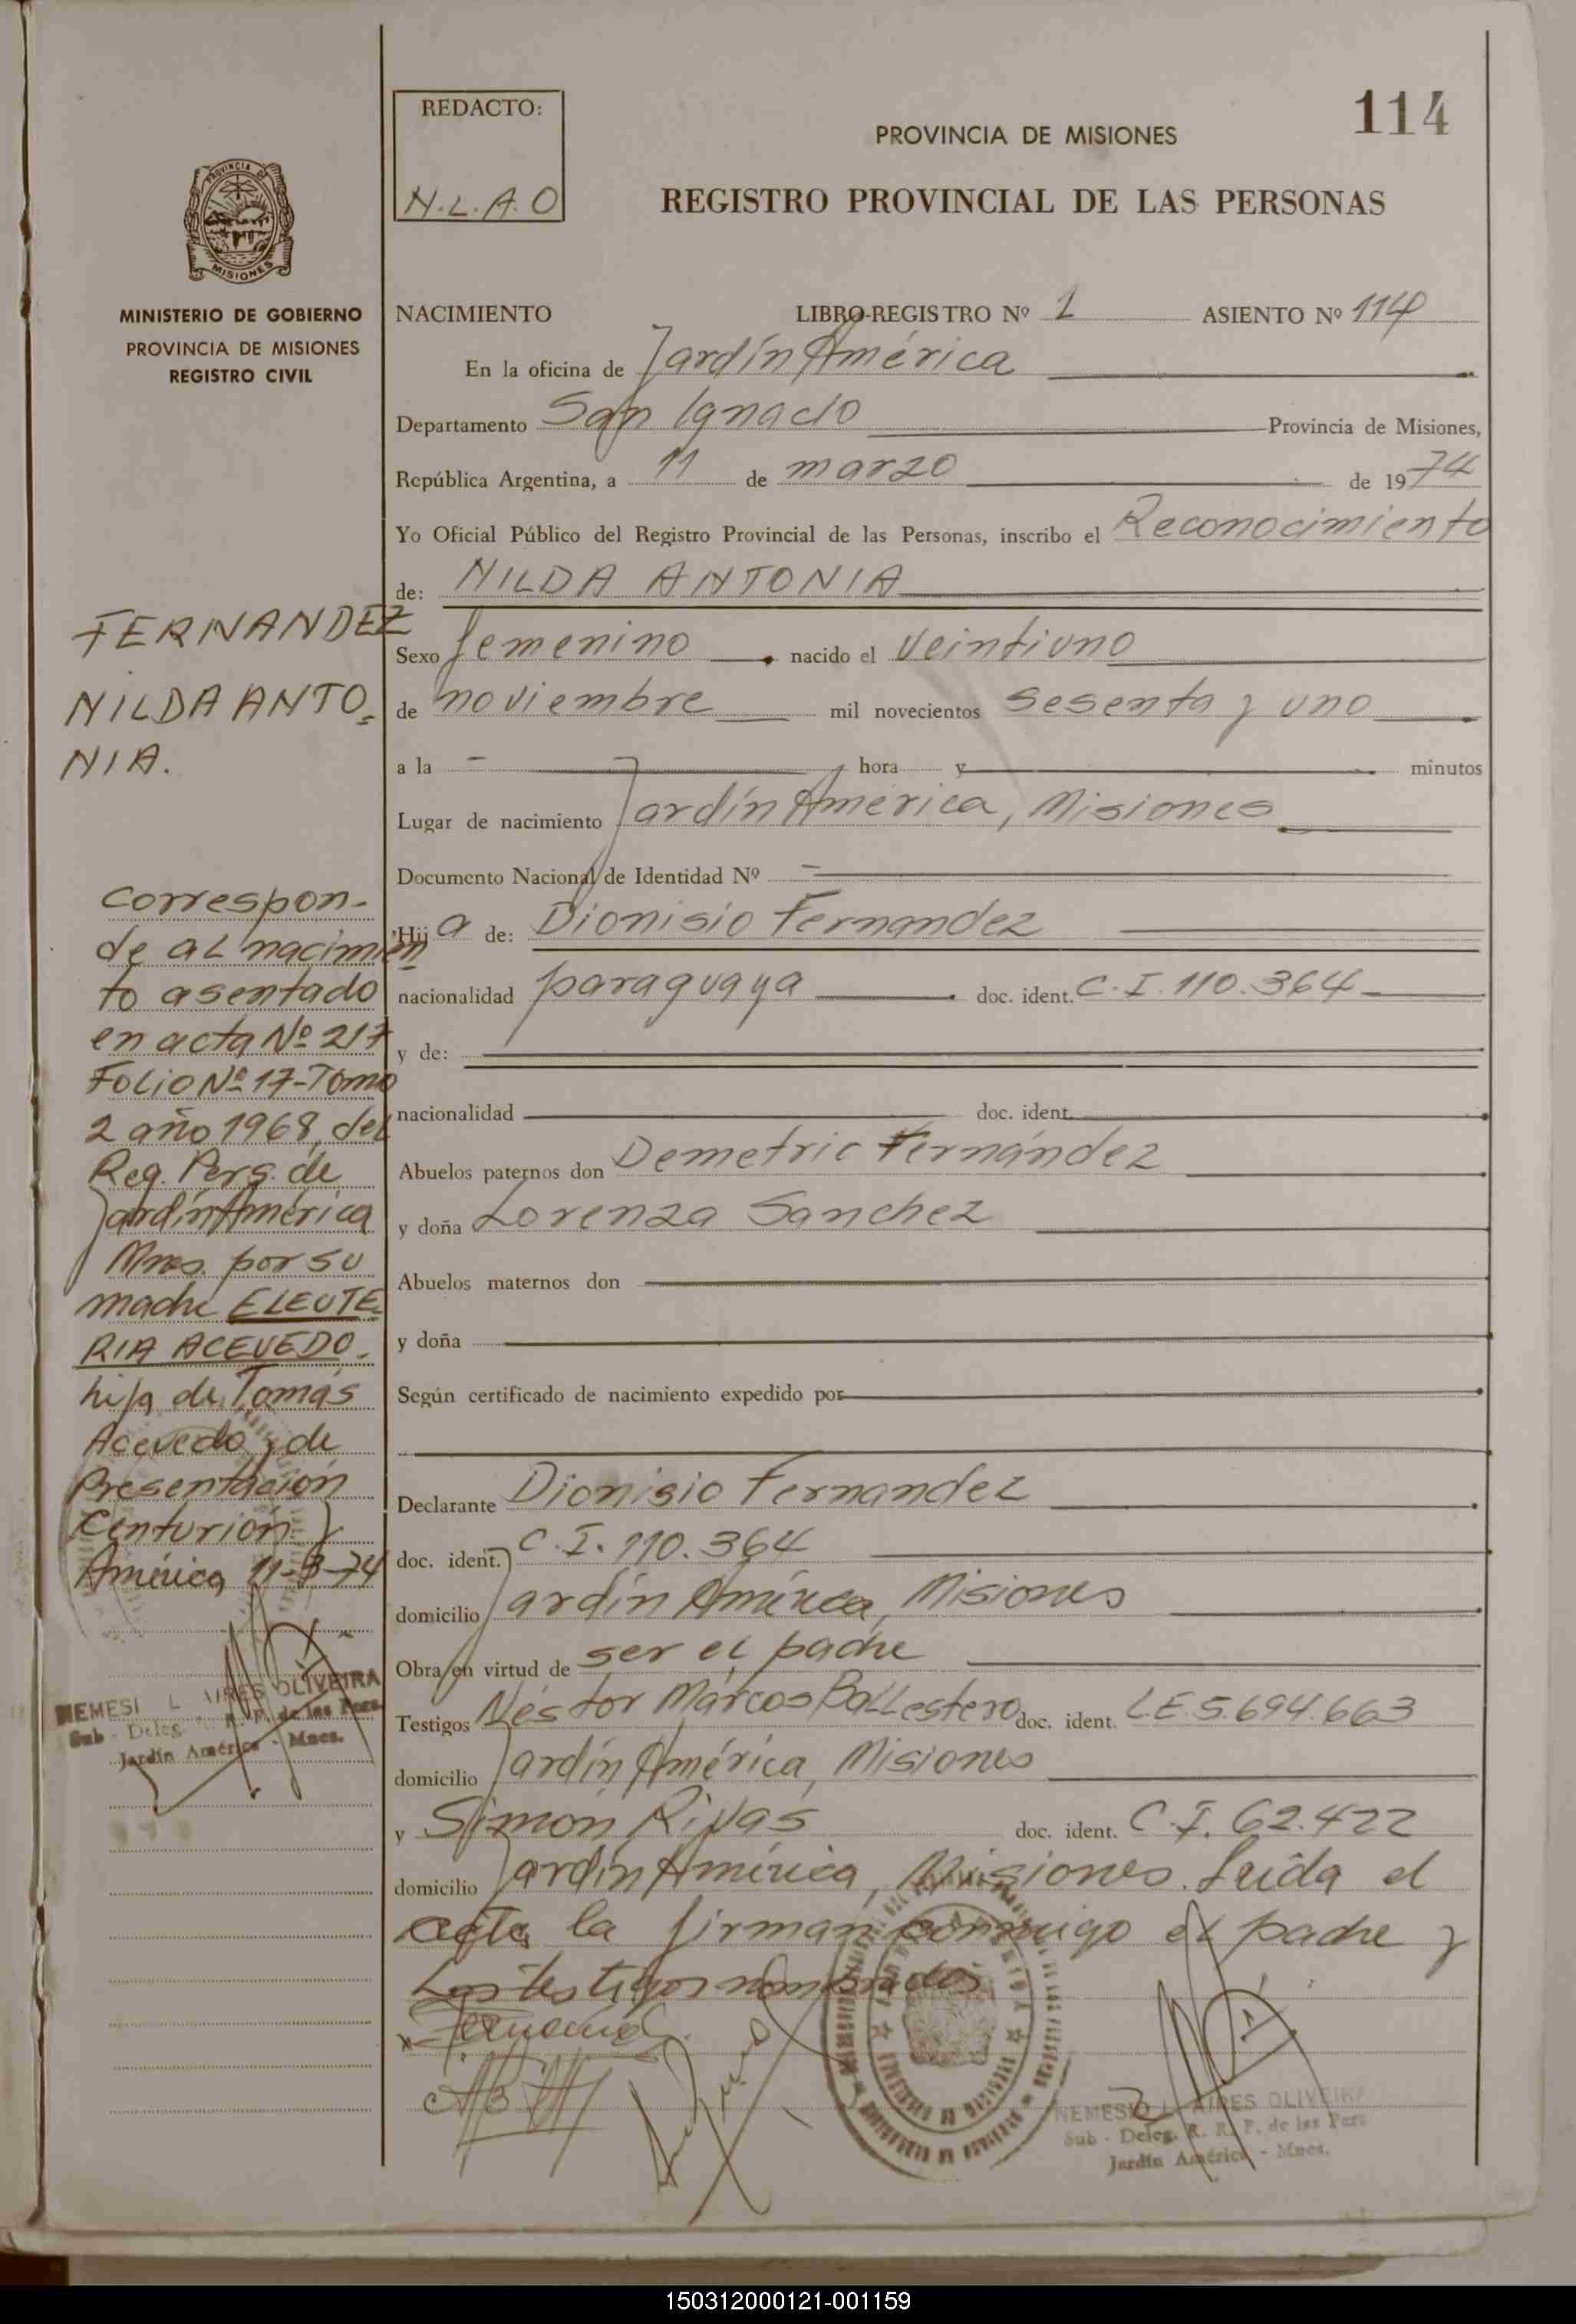 114
REDACTO:
N.L.A.O
PROVINCIA DE MISIONES
REGISTRO PROVINCIAL DE LAS PERSONAS
PROVINCIA
MISIONES
MINISTERIO DE GOBIERNO
PROVINCIA DE MISIONES
REGISTRO CIVIL
FERNANDEZ
NILDA ANTO_
NIA.
Correspon-
de al nacimien
to asentado
en acta Nº 217
Folio Nº 17-Tomo
2 año 1968, del
Reg. Pers. de
Jardín América
Mnes. por su
madre ELEUTE_
RIA ACEVEDO.
hija de Tomás
Acevedo y de
Presentación
Centurión. J.
América 11-3-74
AIRES OLIVEIRA
Sub - Deleg. R. P. de las Pers.
Jardín América - Mnes.
NACIMIENTO LIBRO-REGISTRO Nº 1 ASIENTO Nº 114
En la oficina de Jardín América
Departamento San Ignacio Provincia de Misiones,
República Argentina, a 11 de marzo de 1974
Yo Oficial Público del Registro Provincial de las Personas, inscribo el Reconocimiento
de: NILDA ANTONIA
Sexo femenino. nacido el veintiuno
de noviembre mil novecientos sesenta y uno
a la - hora y minutos
Lugar de nacimiento Jardín América, Misiones
Documento Nacional de Identidad Nº -
Hij a de: Dionisio Fernandez
nacionalidad paraguaya doc. ident. C.I. 110.364
y de:
nacionalidad doc. ident.
Abuelos paternos don Demetric Fernández
y doña Lorenza Sanchez
Abuelos maternos don
y doña
Según certificado de nacimiento expedido por
Declarante Dionisio Fernandez
doc. ident. C.I. 110.364
domicilio Jardín América, Misiones
Obra en virtud de ser el padre
Testigos Néstor Marcos Ballestero doc. ident. L.E. 5.694.663
domicilio Jardín América, Misiones
y Simón Rivas doc. ident. C.I. 62.422
domicilio Jardín América, Misiones. Leída el
acta la firman conmigo el padre y
los testigos nombrados
NEMESIO L AIRES OLIVEIRA
Sub - Deleg. R. R. P. de las Pers
Jardín América - Mnes.
150312000121-001159